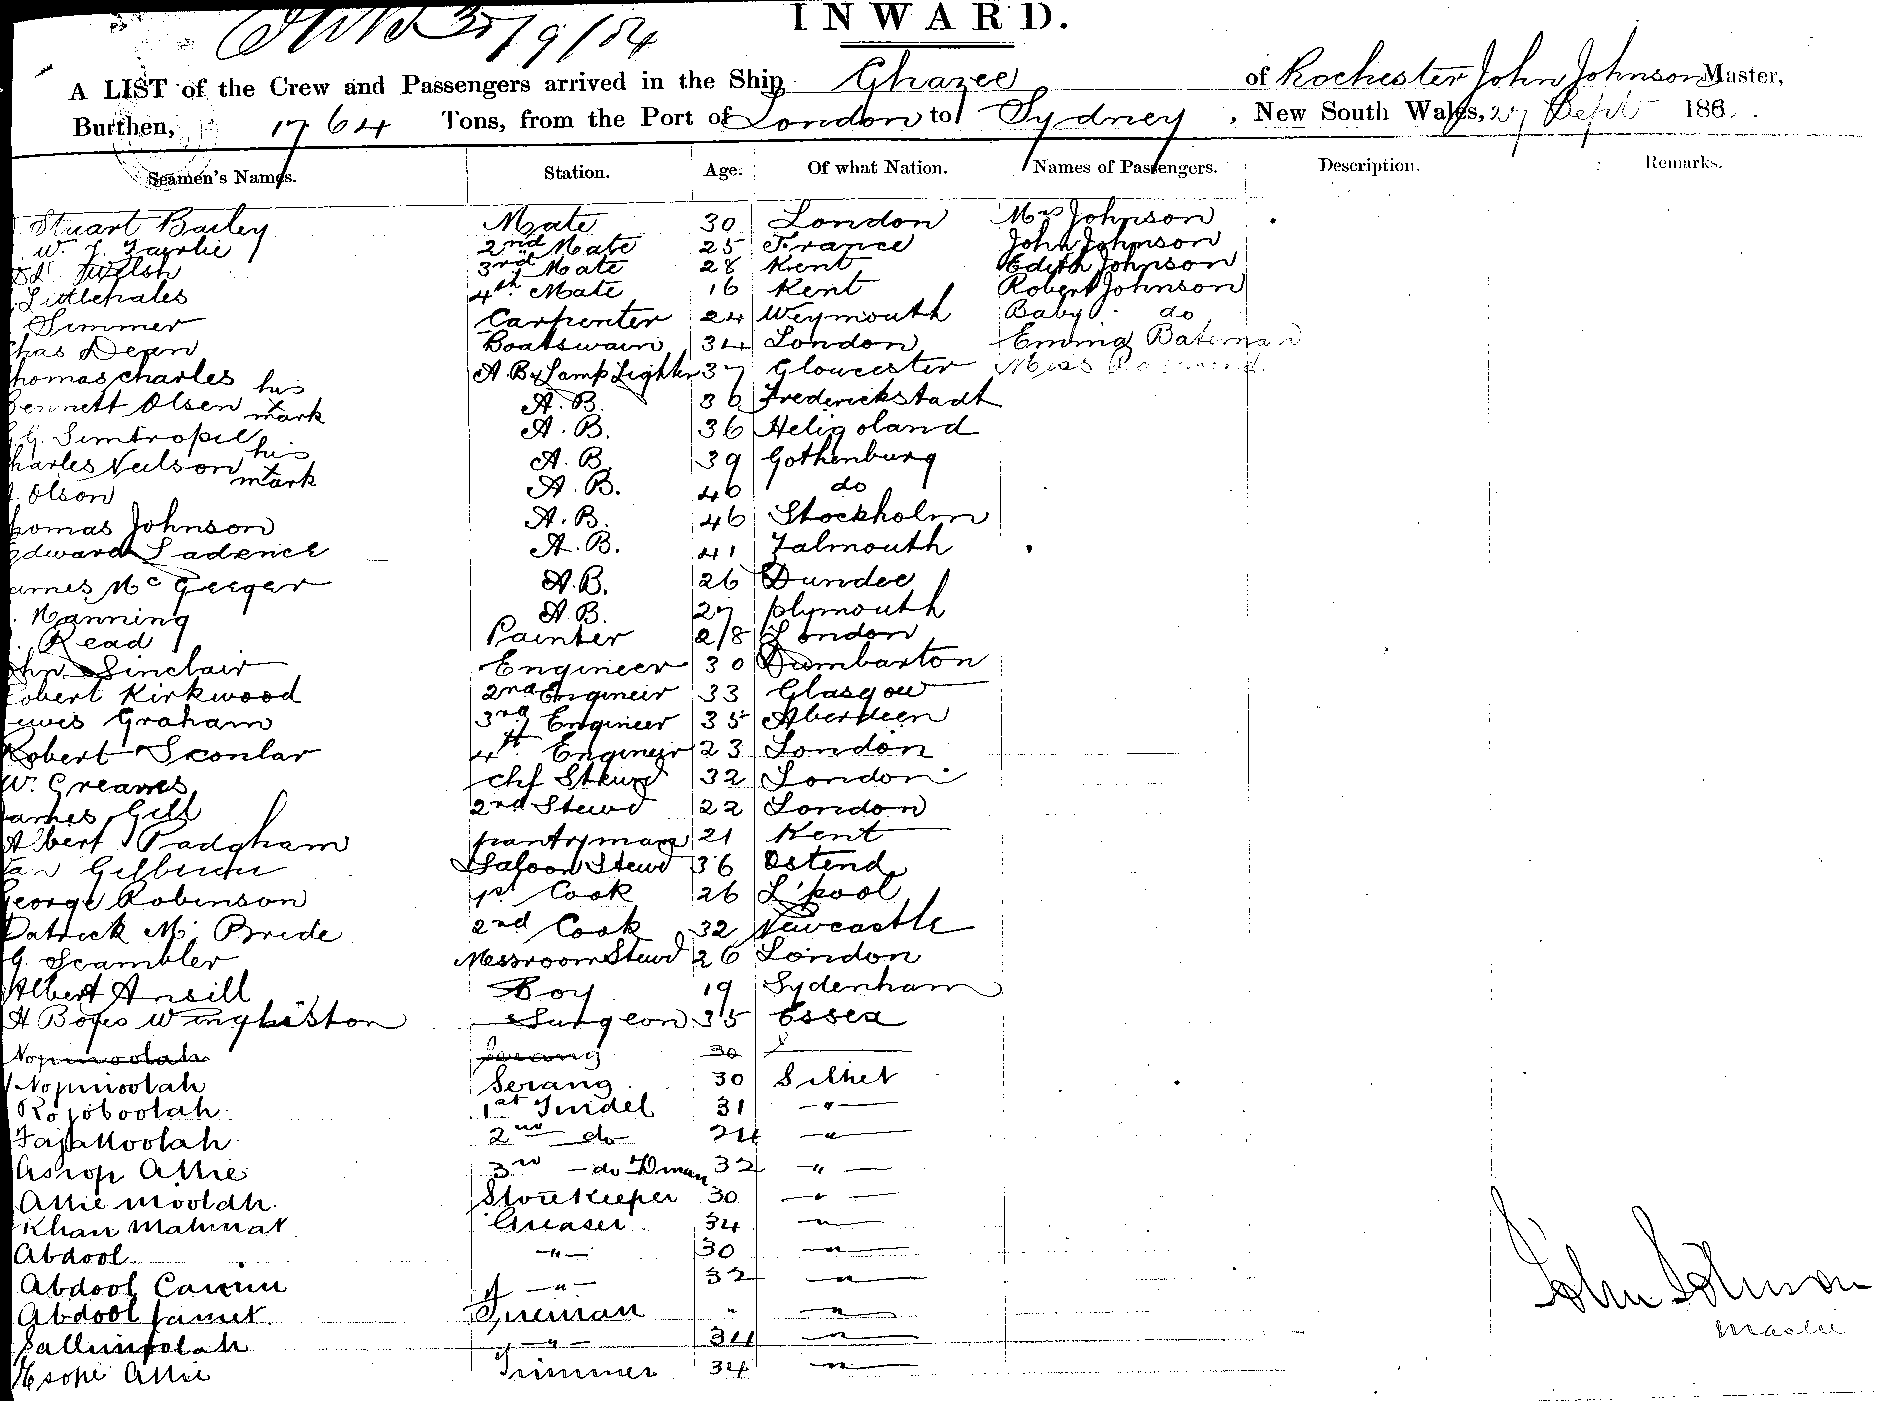 30/9/84
INWARD.
A LIST of the Crew and Passengers arrived in the Ship Ghazee of Rochester John Johnson Master,
Burthen, 1764 Tons, from the Port of London to Sydney, New South Wales, 27 Sept 186 .
Seamen's Names. Station. Age. Of what Nation. Names of Passengers. Description. Remarks.
Stuart Bailey Mate 30 London Mrs Johnson
W. J. Fairlie 2nd Mate 25 France John Johnson
Welsh 3rd Mate 28 Kent Edith Johnson
Littlehales 4th Mate 16 Kent Robert Johnson
Simmer Carpenter 24 Weymouth Baby do
Chas Dean Boatswain 34 London Emma Bateman
Thomas Charles A.B & Lamp Lighter 37 Gloucester Miss
Bennett Olsen his mark A.B. 36 Frederickstadt
A.B. 36 Heligoland
Charles Neilson his mark A.B. 39 Gothenburg
Olson A.B. 46 do
Thomas Johnson A.B. 46 Stockholm
Edward A.B. 41 Falmouth
James Mc A.B. 26 Dundee
Manning A.B. 27 Plymouth
Read Painter 28 London
John Sinclair Engineer 30 Dumbarton
Robert Kirkwood 2nd Engineer 33 Glasgow
Lewis Graham 3rd Engineer 35 Aberdeen
Robert Sconlar 4th Engineer 23 London
W. Greaves Chf Stewd 32 London
James Gill 2nd Stewd 22 London
Albert Padgham pantryman 21 Kent
Saloon Stewd 36 Ostend
George Robinson 1st Cook 26 L'pool
Patrick Mc Bride 2nd Cook 32 Newcastle
G. Scambler Messroom Stewd 26 London
Albert Ansill Boy 19 Sydenham
H Surgeon 35 Essex
Nopmoolah Serang 30
Nopmoolah Serang 30 Silhet
Rojoboolah 1st Tindel 31 — " —
2nd do 24 — " —
Athe 3rd — do 32 — " —
Storekeeper 30 — " —
Khan Mahmat Greaser 34 — " —
Abdool — " — 30 — " —
Abdool — " — 32 — " —
Abdool Jamet Fireman " — " —
— " — 34 — " —
Trimmer 34 — " —
John Johnson
Master